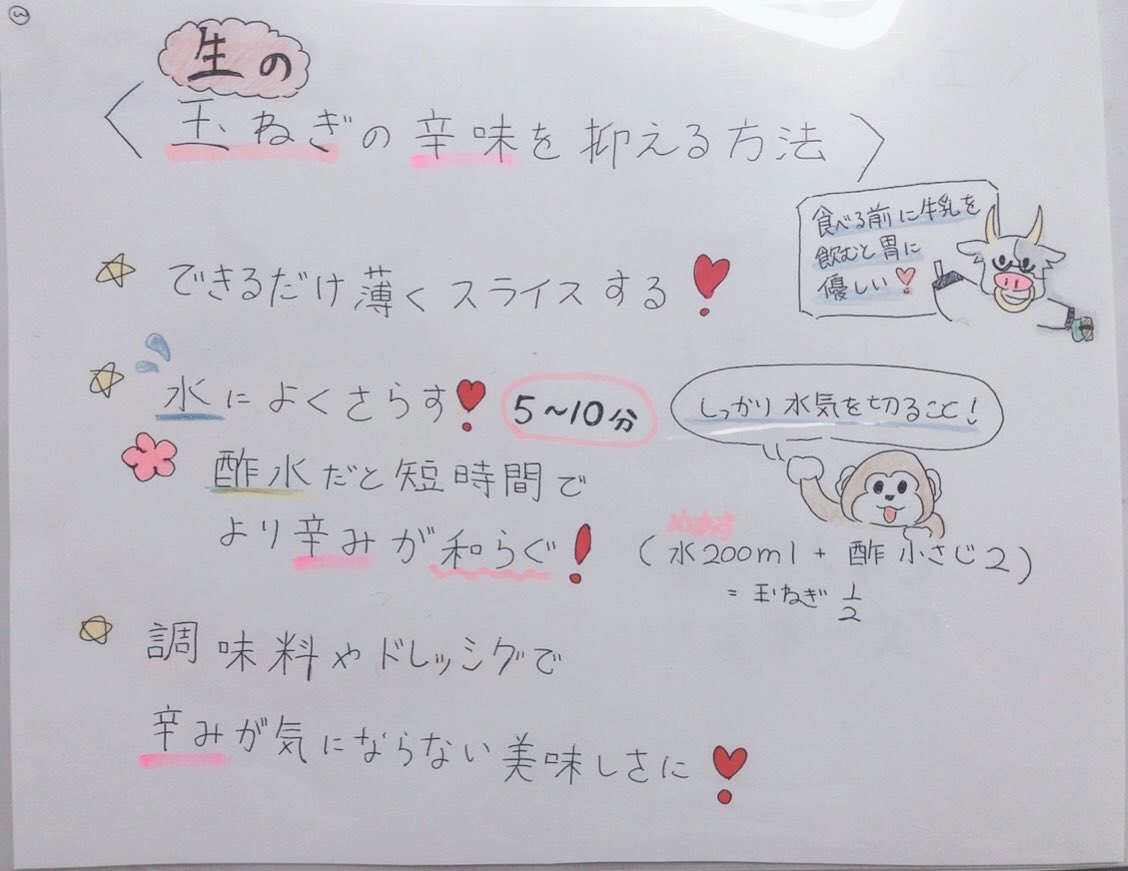 ③
生の
〈玉ねぎの辛味を抑える方法〉
食べる前に牛乳を
飲むと胃に
優しい♡
☆できるだけ薄くスライスする
☆水によくさらす
5〜10分
しっかり水気を切ること!
酢水だと短時間で
より辛みが和らぐ!
(水200ml+酢小さじ2)
=玉ねぎ1/2
☆調味料やドレッシングで
辛みが気にならない美味しさに